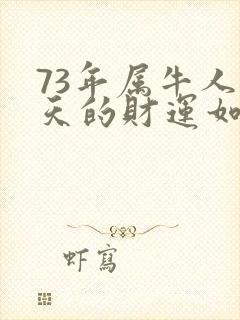 73年属牛人
天的财運如
虾寫